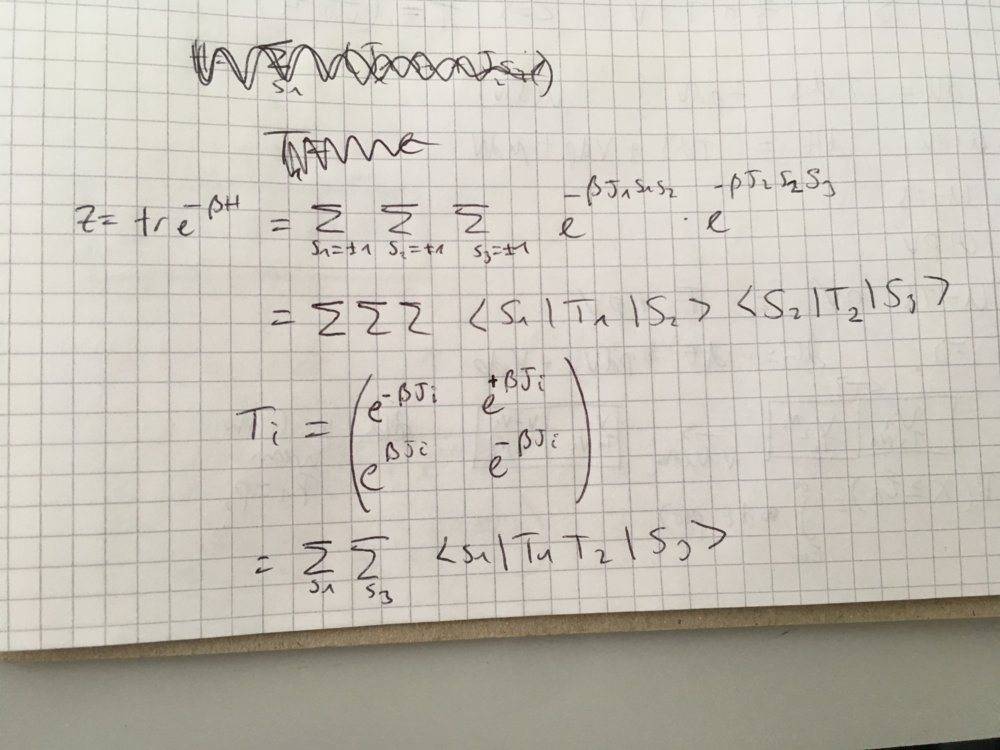 Z = tr e^{-βH} = Σ_{S₁=±1} Σ_{S₂=±1} Σ_{S₃=±1} e^{-βJ₁S₁S₂} · e^{-βJ₂S₂S₃}
= Σ Σ Σ ⟨S₁|T₁|S₂⟩ ⟨S₂|T₂|S₃⟩
T_i = ( e^{-βJ_i} e^{+βJ_i}
e^{βJ_i} e^{-βJ_i} )
= Σ_{S₁} Σ_{S₃} ⟨S₁|T₁T₂|S₃⟩